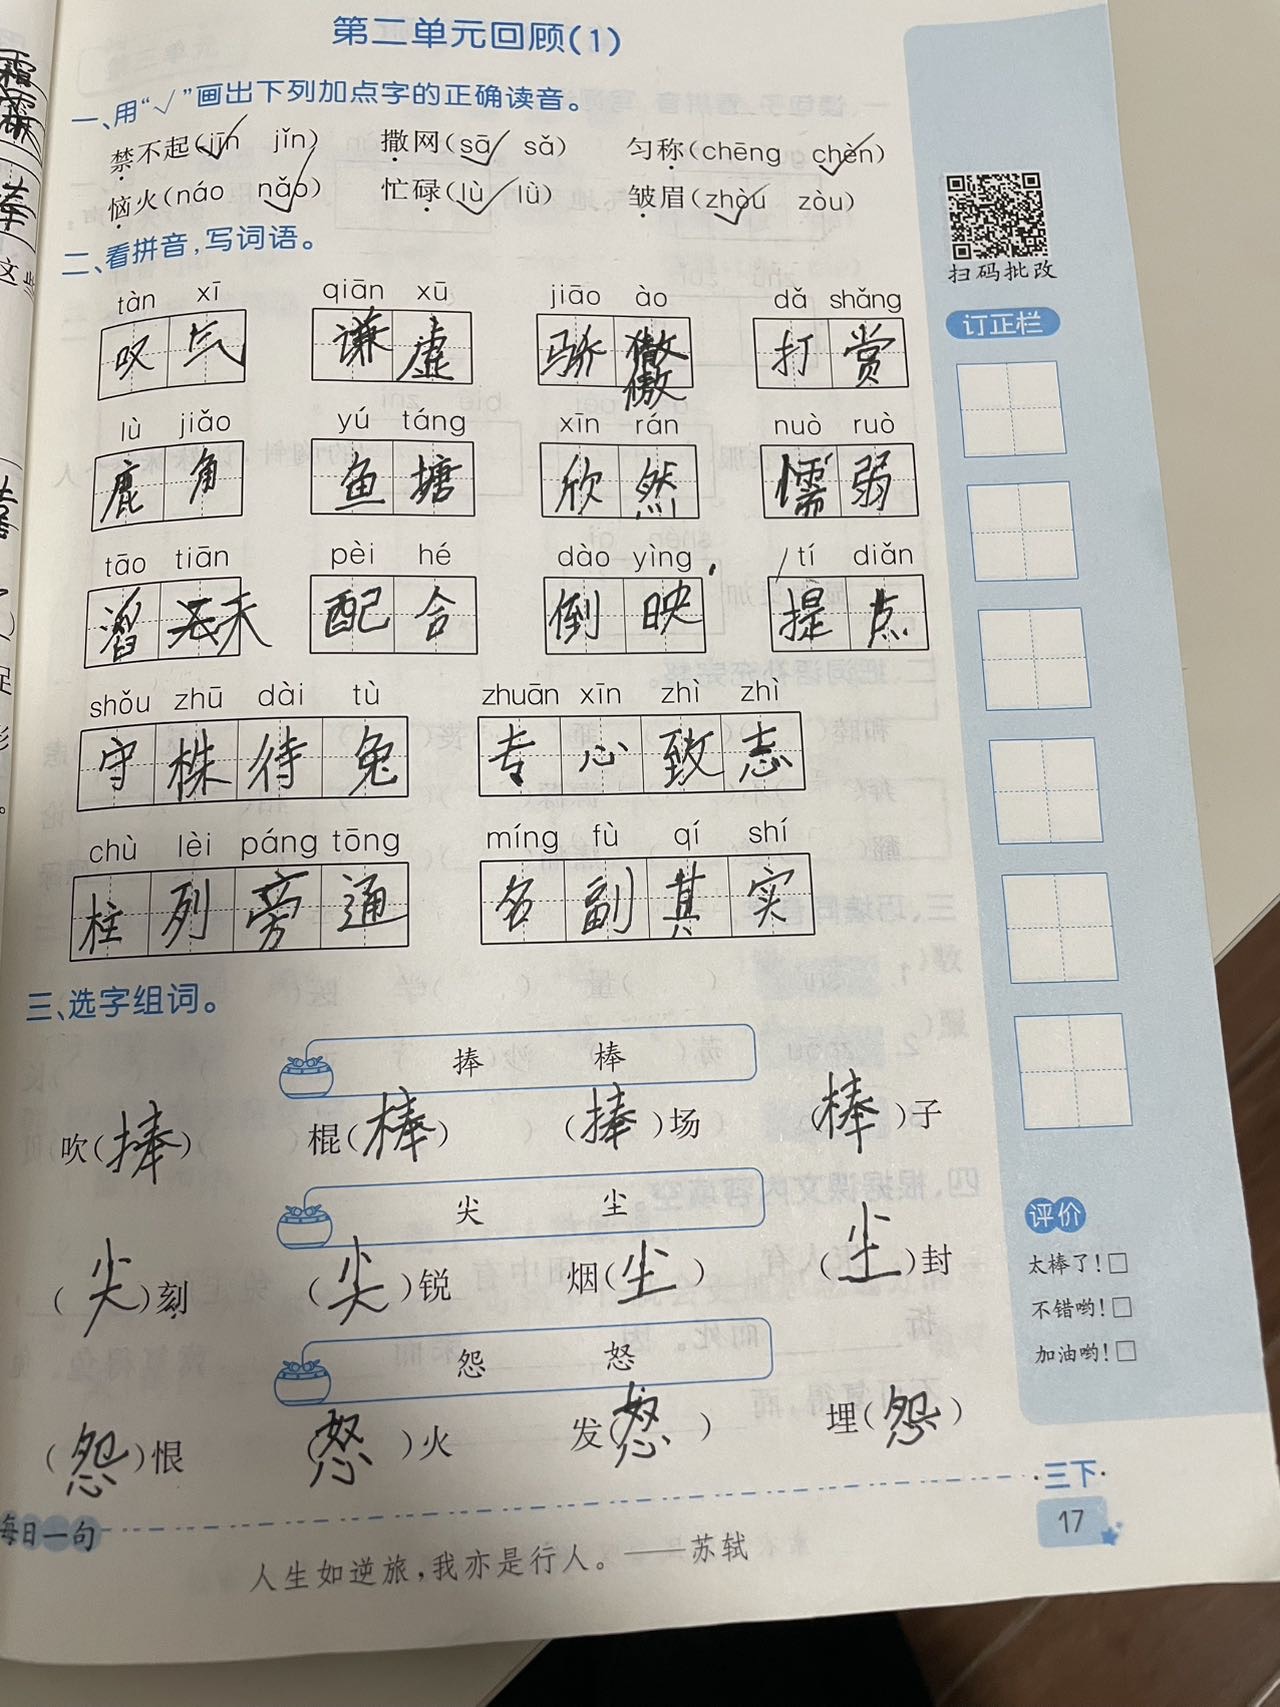 第二单元回顾(1)
一、用“√”画出下列加点字的正确读音。
禁不起(jīn jǐn) 撒网(sā sǎ) 匀称(chēng chèn)
恼火(náo nǎo) 忙碌(lù lǜ) 皱眉(zhòu zòu)
扫码批改
二、看拼音,写词语。
tàn xī qiān xū jiāo ào dǎ shǎng
叹气 谦虚 骄傲 打赏
傲
订正栏
lù jiǎo yú táng xīn rán nuò ruò
鹿角 鱼塘 欣然 懦弱
tāo tiān pèi hé dào yìng tí diǎn
天 配合 倒映 提点
shǒu zhū dài tù zhuān xīn zhì zhì
守株待兔 专心致志
chù lèi páng tōng míng fù qí shí
柱列旁通 名副其实
三、选字组词。
捧 棒
吹(捧) 棍(棒) (捧)场 (棒)子
尖 尘
(尖)刻 (尖)锐 烟(尘) (尘)封
怨 怒
(怨)恨 (怒)火 发(怒) 埋(怨)
评价
太棒了!□
不错哟!□
加油哟!□
每日一句
人生如逆旅,我亦是行人。——苏轼
·三下·
17